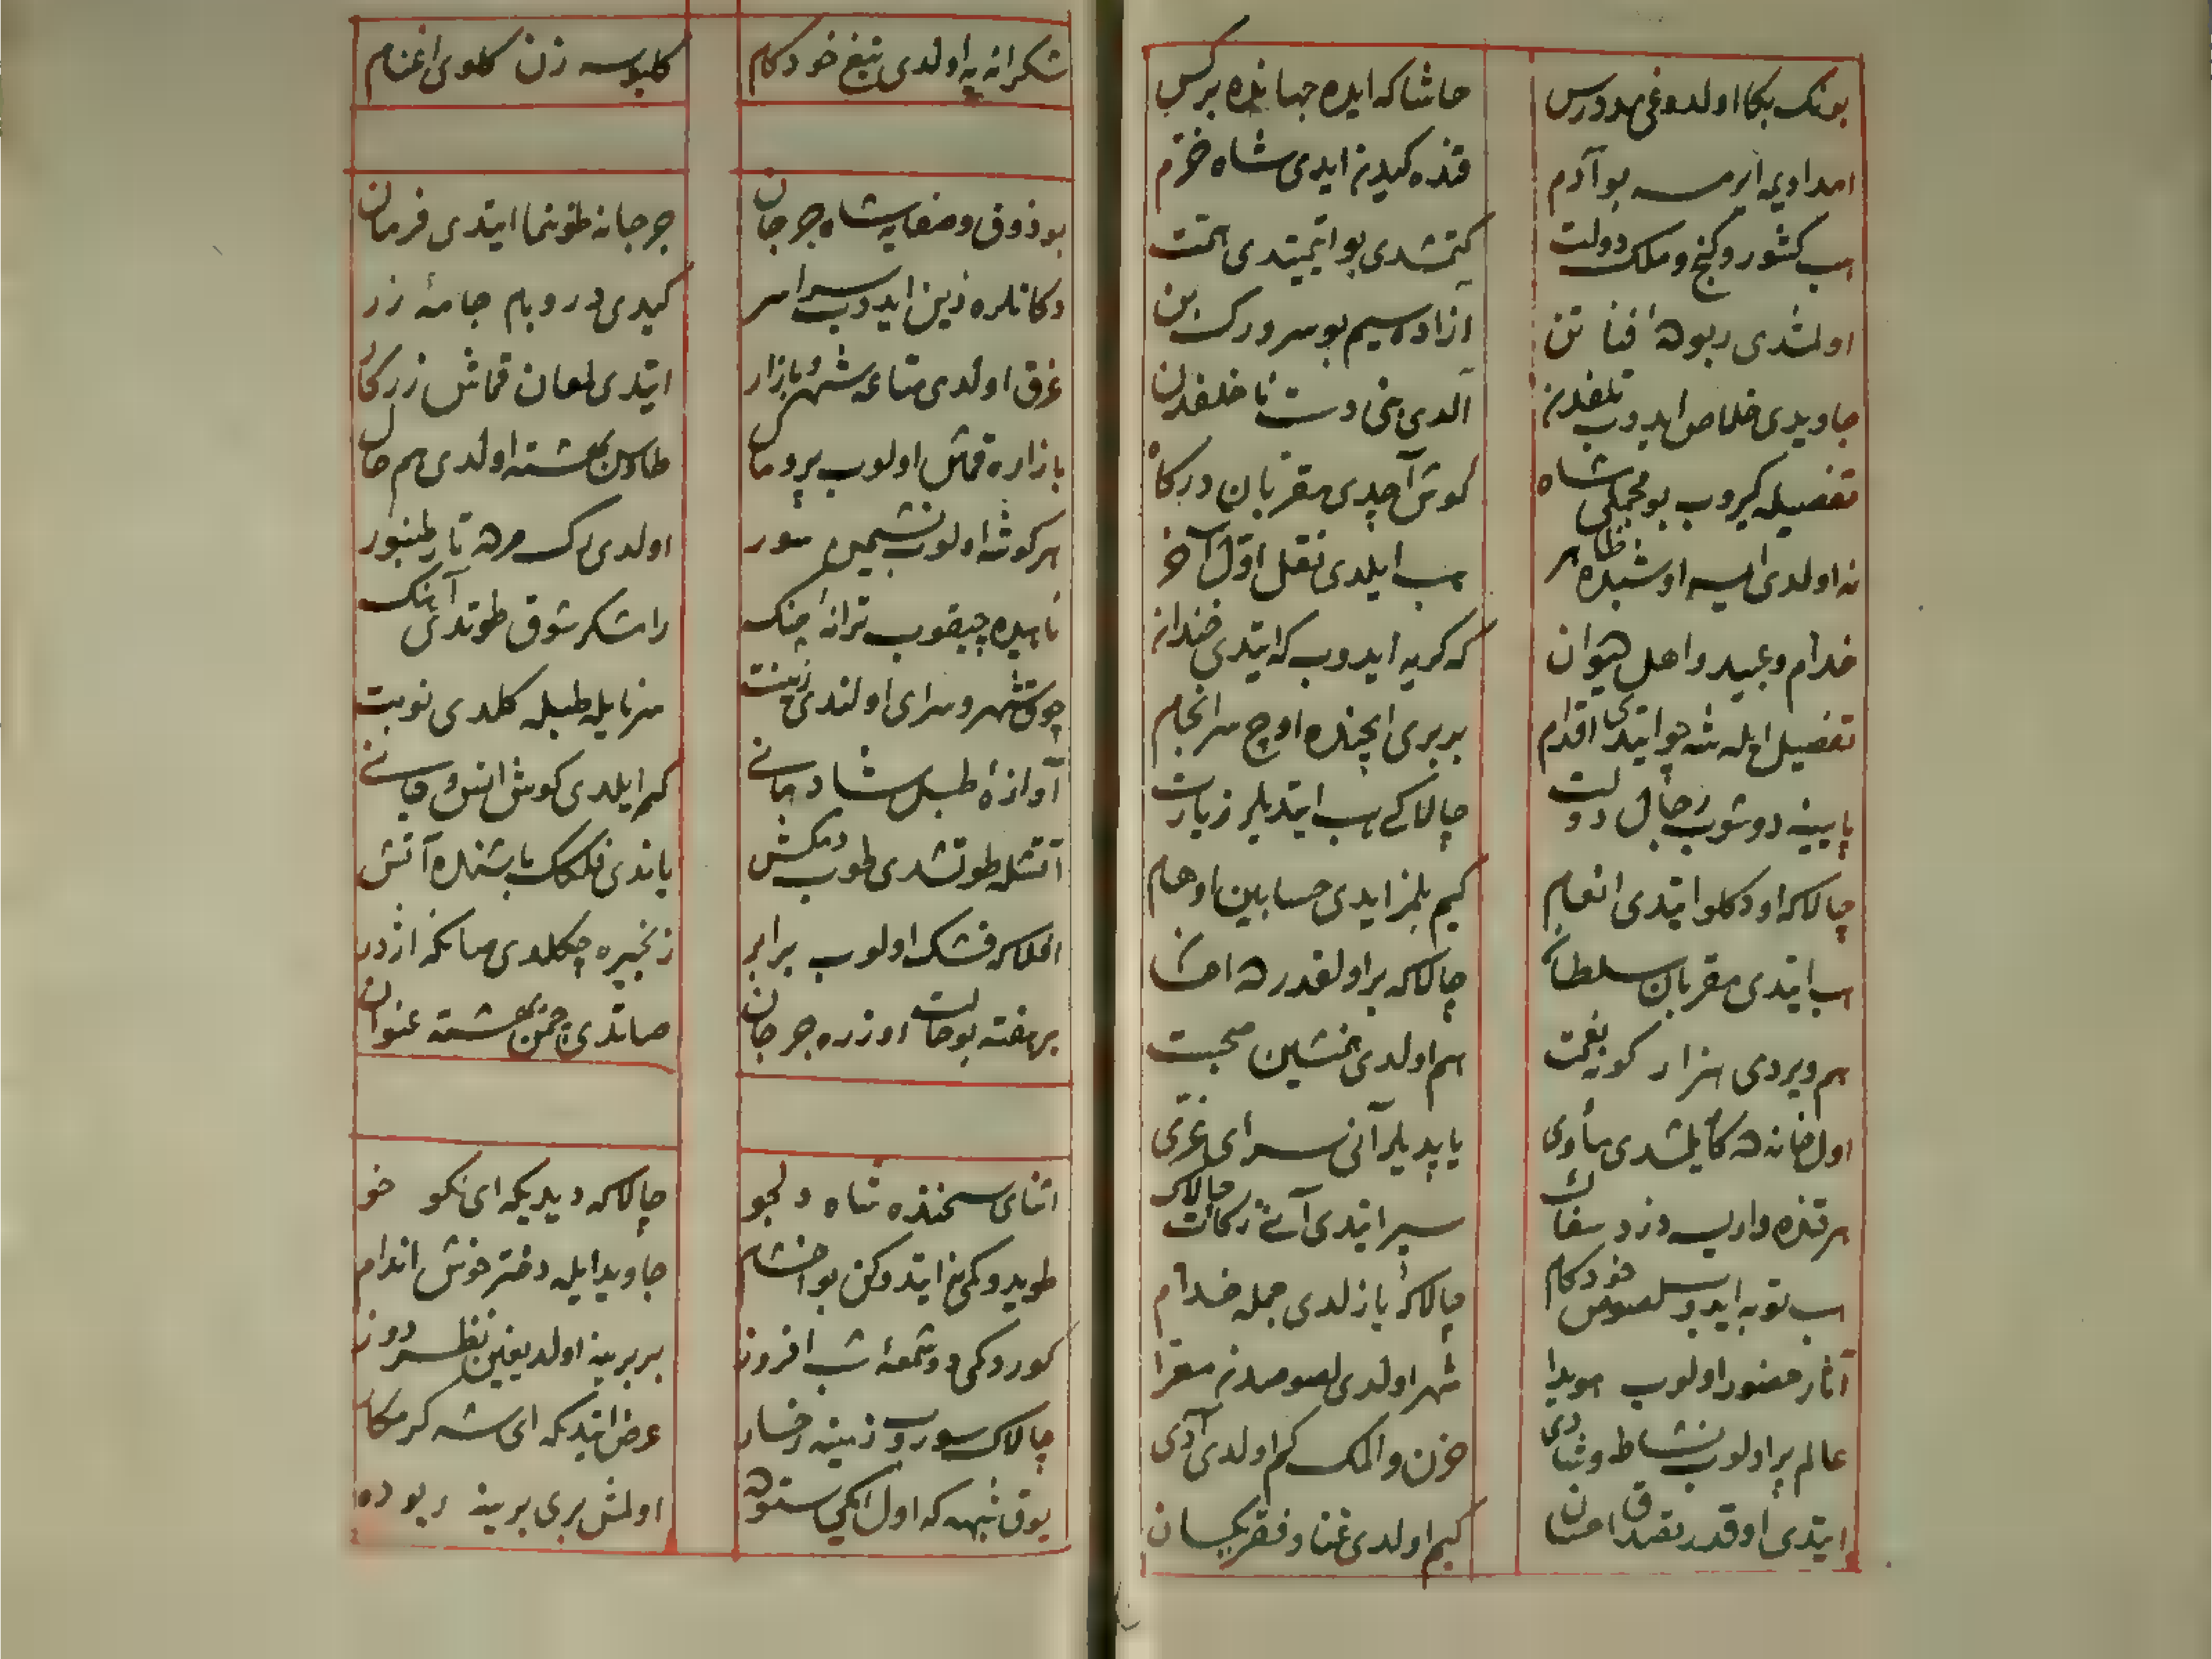 بونك بكا اولدوغی مددرس
حاشا که ایده جهانده برکس
امداد ایرمسه بو آدم
قنده کیدر ایدی شاه خرم
هب کشور و کنج و ملك دولت
کتمشدی بو ایتمیتدی همت
اولشدی ربوده فنا تن
آزاده سیم بو سرورك بن
جاویدی خلاص ایدوب تلفدن
آلدی بنی دست ناخلفدن
تفصیله کیروب بو مجملی شاه
کوش آچدی مقربان درکاه
نه اولدی ایسه اوشبده ظاهر
هب ایلدی نقل اول آخر
خدام و عبید و اهل دیوان
که کریه ایدوب که ایتدی خندان
تفصیل ایله شه چو ایتدی اقدام
بربری ایچنده اوچ سرانجام
پایینه دوشوب رجال دولت
چالاکی هب ایتدیلر زیارت
چالاکه اودکلو ایتدی انعام
کیم بلمز ایدی حسابین اوهام
هب ایتدی مقربان سلطان
چالاکه بر اولقدرده احسان
هم ویردی هزار کونه نعمت
هم اولدی همنشین صحبت
اول خانه ده کایلشدی مأوی
یاپدیلر آنی سرای غری
هر قنده وارایسه دزد سفاك
سیر ایتدی آنی رکات چالاك
هب توبه ایدوب لصوص خودکام
چالاکه یازلدی جمله خدام
آثار حضور اولوب هویدا
شهر اولدی لصوصدن معرا
عالم پر اولوب نشاط و شادی
حزن و المك کم اولدی آدی
ایتدی اوقدر تصدق احسان
کیم اولدی غنا و فقر یکسان
شکرانه یه اولدی تیغ خودکام
کلبوسه زن کلوی اغنام
بو ذوق و صفایه شاه جرجان
جرجانه طوننما ایتدی فرمان
دکانلره زین ایدوب سراسر
کیدی در و بام جامهٔ زر
غرق اولدی متاعه شهر و بازار
ایتدی لمعان قماش زرکار
بازاره قماش اولوب پر و بال
طاوس بهشته اولدی هم حال
هر کوشه اولوب نشیمن سور
اولدی رك مرده تار طنبور
ناهیده چیقوب ترانهٔ چنك
رامشکر شوق طوتدی آهنك
چون شهر و سرای اولندی زینت
سرنایله طبله کلدی نوبت
آوازهٔ طبل شادمانی
کر ایلدی کوش انس و جانی
آتشله طوتشدی طوب دمکش
یاندی فلکك باشنده آتش
افلاکه فشك اولوب برابر
زنجیره چکلدی صانکه اژدر
بر هفته بو حالت اوزره جرجان
صاتدی چمن بهشته عنوان
اثنای سخنده شاه دلجو
چالاکه دیدیکه ای نکو خو
طویدوکمی ایتدوکن بو اخشام
جاوید ایله دختر خوش اندام
کوردکمی دو شمعهٔ شب افروز
بربرینه اولدیغین نظر دوز
چالاك سوروب زمینه رخسار
عرض ایتدیکه ای شه کرمکار
یوق شبهه که اول ایکی ستوده
اولمش بری برینه ربوده